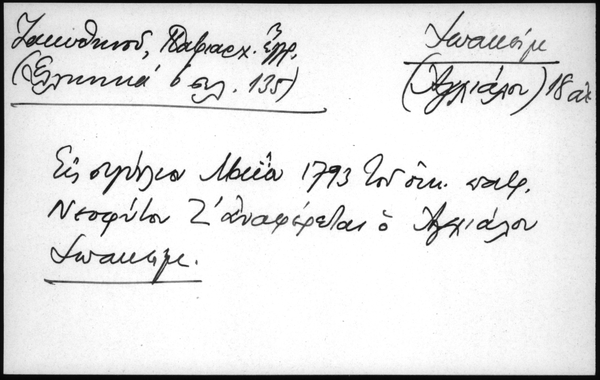 Ζακυθηνοῦ, Πατριαρχ. Ἔγγρ.
(Ἑλληνικά 6 σελ. 135)
Ἰωακείμ
(Ἀγχιάλου) 18 αἰ.
Εἰς σιγίλλιο Μαΐου 1793 τοῦ οἰκ. πατρ.
Νεοφύτου Ζ΄ ἀναφέρεται ὁ Ἀγχιάλου
Ἰωακείμ.